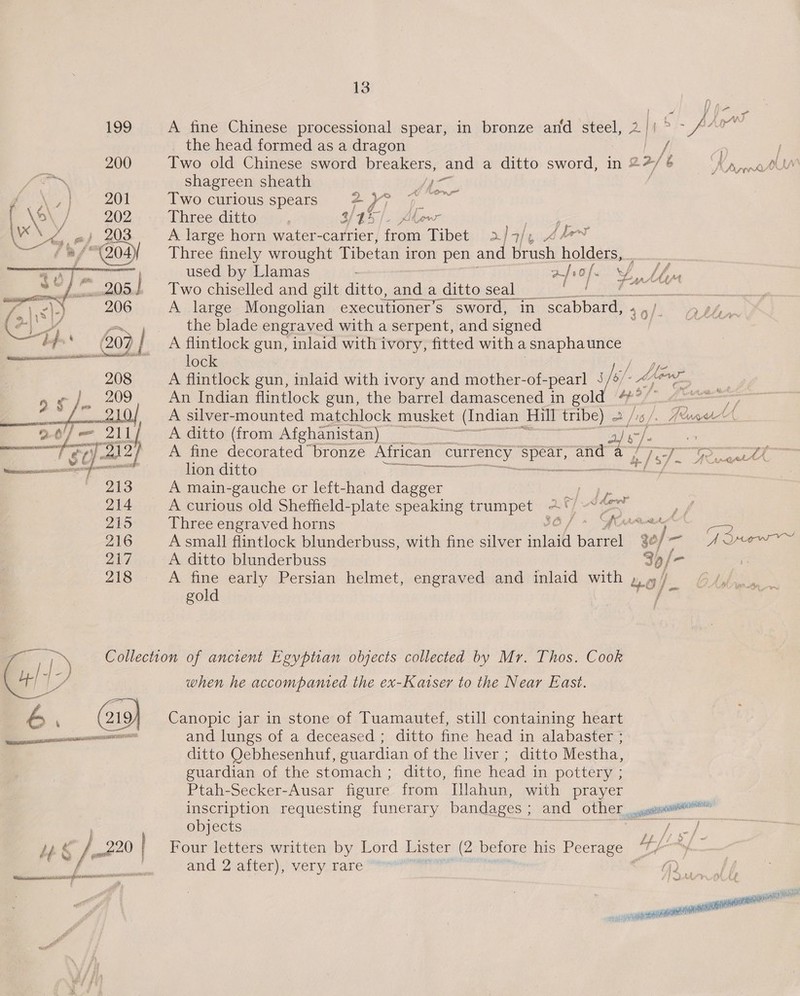 13
199 A fine Chinese processional spear, in bronze and steel,
the head formed as a dragon
200 Two old Chinese sword breakers, and a ditto sword, in 22/6
shagreen sheath
201 Two curious spears
202 Three ditto
203 A large horn water-carrier, from Tibet
(204) Three finely wrought Tibetan iron pen and brush holders,
used by Llamas
205 Two chiselled and gilt ditto, and a ditto seal
206 A large Mongolian executioner's sword, in scabbard,
the blade engraved with a serpent, and signed
(207) A flintlock gun, inlaid with ivory, fitted with a snaphaunce
lock
208 A flintlock gun, inlaid with ivory and mother-of-pearl
209 An Indian flintlock gun, the barrel damascened in gold
210 A silver-mounted matchlock musket (Indian Hill tribe)
211 A ditto (from Afghanistan)
212 A fine decorated bronze African currency spear, and a
lion ditto
213 A main-gauche or left-hand dagger
214 A curious old Sheffield-plate speaking trumpet
215 Three engraved horns 30/-
216 A small flintlock blunderbuss, with fine silver inlaid barrel 30/- Snow
217 A ditto blunderbuss 30/-
218 A fine early Persian helmet, engraved and inlaid with
gold
Collection of ancient Egyptian objects collected by Mr. Thos. Cook
when he accompanied the ex-Kaiser to the Near East.
(219) Canopic jar in stone of Tuamautef, still containing heart
and lungs of a deceased ; ditto fine head in alabaster ;
ditto Qebhesenhuf, guardian of the liver ; ditto Mestha,
guardian of the stomach ; ditto, fine head in pottery ;
Ptah-Secker-Ausar figure from Illahun, with prayer
inscription requesting funerary bandages ; and other
objects
45/- 220 Four letters written by Lord Lister (2 before his Peerage
and 2 after), very rare